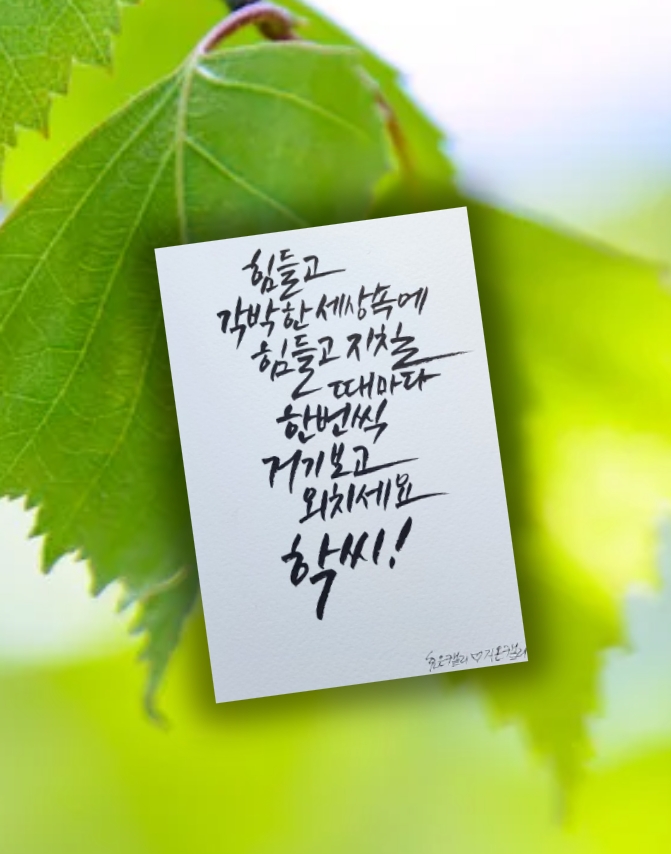 힘들고
각박한 세상속에
힘들고 지칠
때마다
한번씩
거기보고
외치세요
학씨!